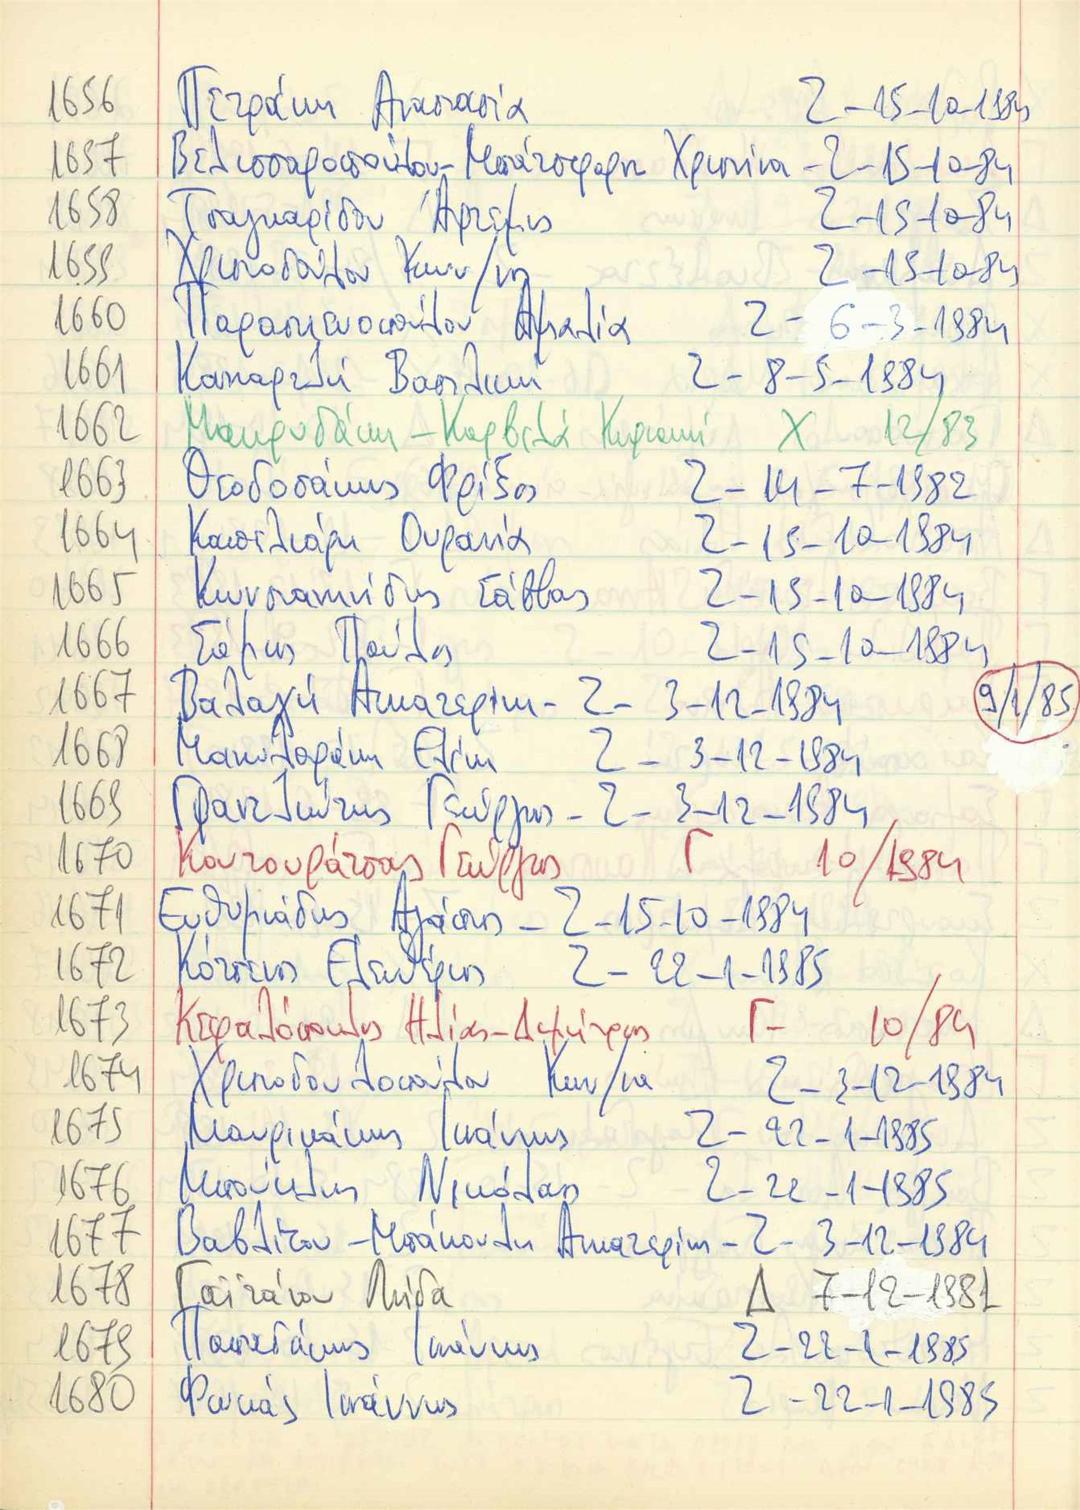 1656 Πετράκη Αναστασία Ζ-15-10-1984
1657 Βελισσαροπούλου-Μπάτσαρη Χριστίνα-Ζ-15-10-84
1658 Τσαγκαρίδου Άρτεμις Ζ-15-10-84
1659 Χριστοδούλου Κων/νη Ζ-15-10-84
1660 Παρασκευοπούλου Αμαλία Ζ-6-3-1984
1661 Καπαρελή Βασιλική Ζ-8-5-1984
1662 Μαυρυδάκη-Καρβελά Κυριακή Χ 12/83
1663 Θεοδοσάκης Φρίξος Ζ-14-7-1982
1664 Καπελιάρη Ουρανία Ζ-15-10-1984
1665 Κωνσταντινίδης Σάββας Ζ-15-10-1984
1666 Σάμιος Παύλος Ζ-15-10-1984
1667 Βαλαγή Αικατερίνη-Ζ-3-12-1984 9/1/85
1668 Ελένη Ζ-3-12-1984
1669 Γεώργιος-Ζ-3-12-1984
1670 Κουτουράτσας Γεώργιος Γ 10/1984
1671 Ευθυμιάδης Αγάπιος-Ζ-15-10-1984
1672 Κότσιας Ελευθέριος Ζ-22-1-1985
1673 Κεφαλόπουλος Ηλίας-Δημήτριος Γ- 10/84
1674 Χριστοδουλοπούλου Κων/να Ζ-3-12-1984
1675 Μαυρικάκης Ιωάννης Ζ-22-1-1985
1676 Νικόλαος Ζ-22-1-1985
1677 Βαβλίτου-Μπάκουλη Αικατερίνη-Ζ-3-12-1984
1678 Γαϊτάνου Λήδα Δ 7-12-1981
1679 Παπαδάκης Ιωάννης Ζ-22-1-1985
1680 Φωκάς Ιωάννης Ζ-22-1-1985